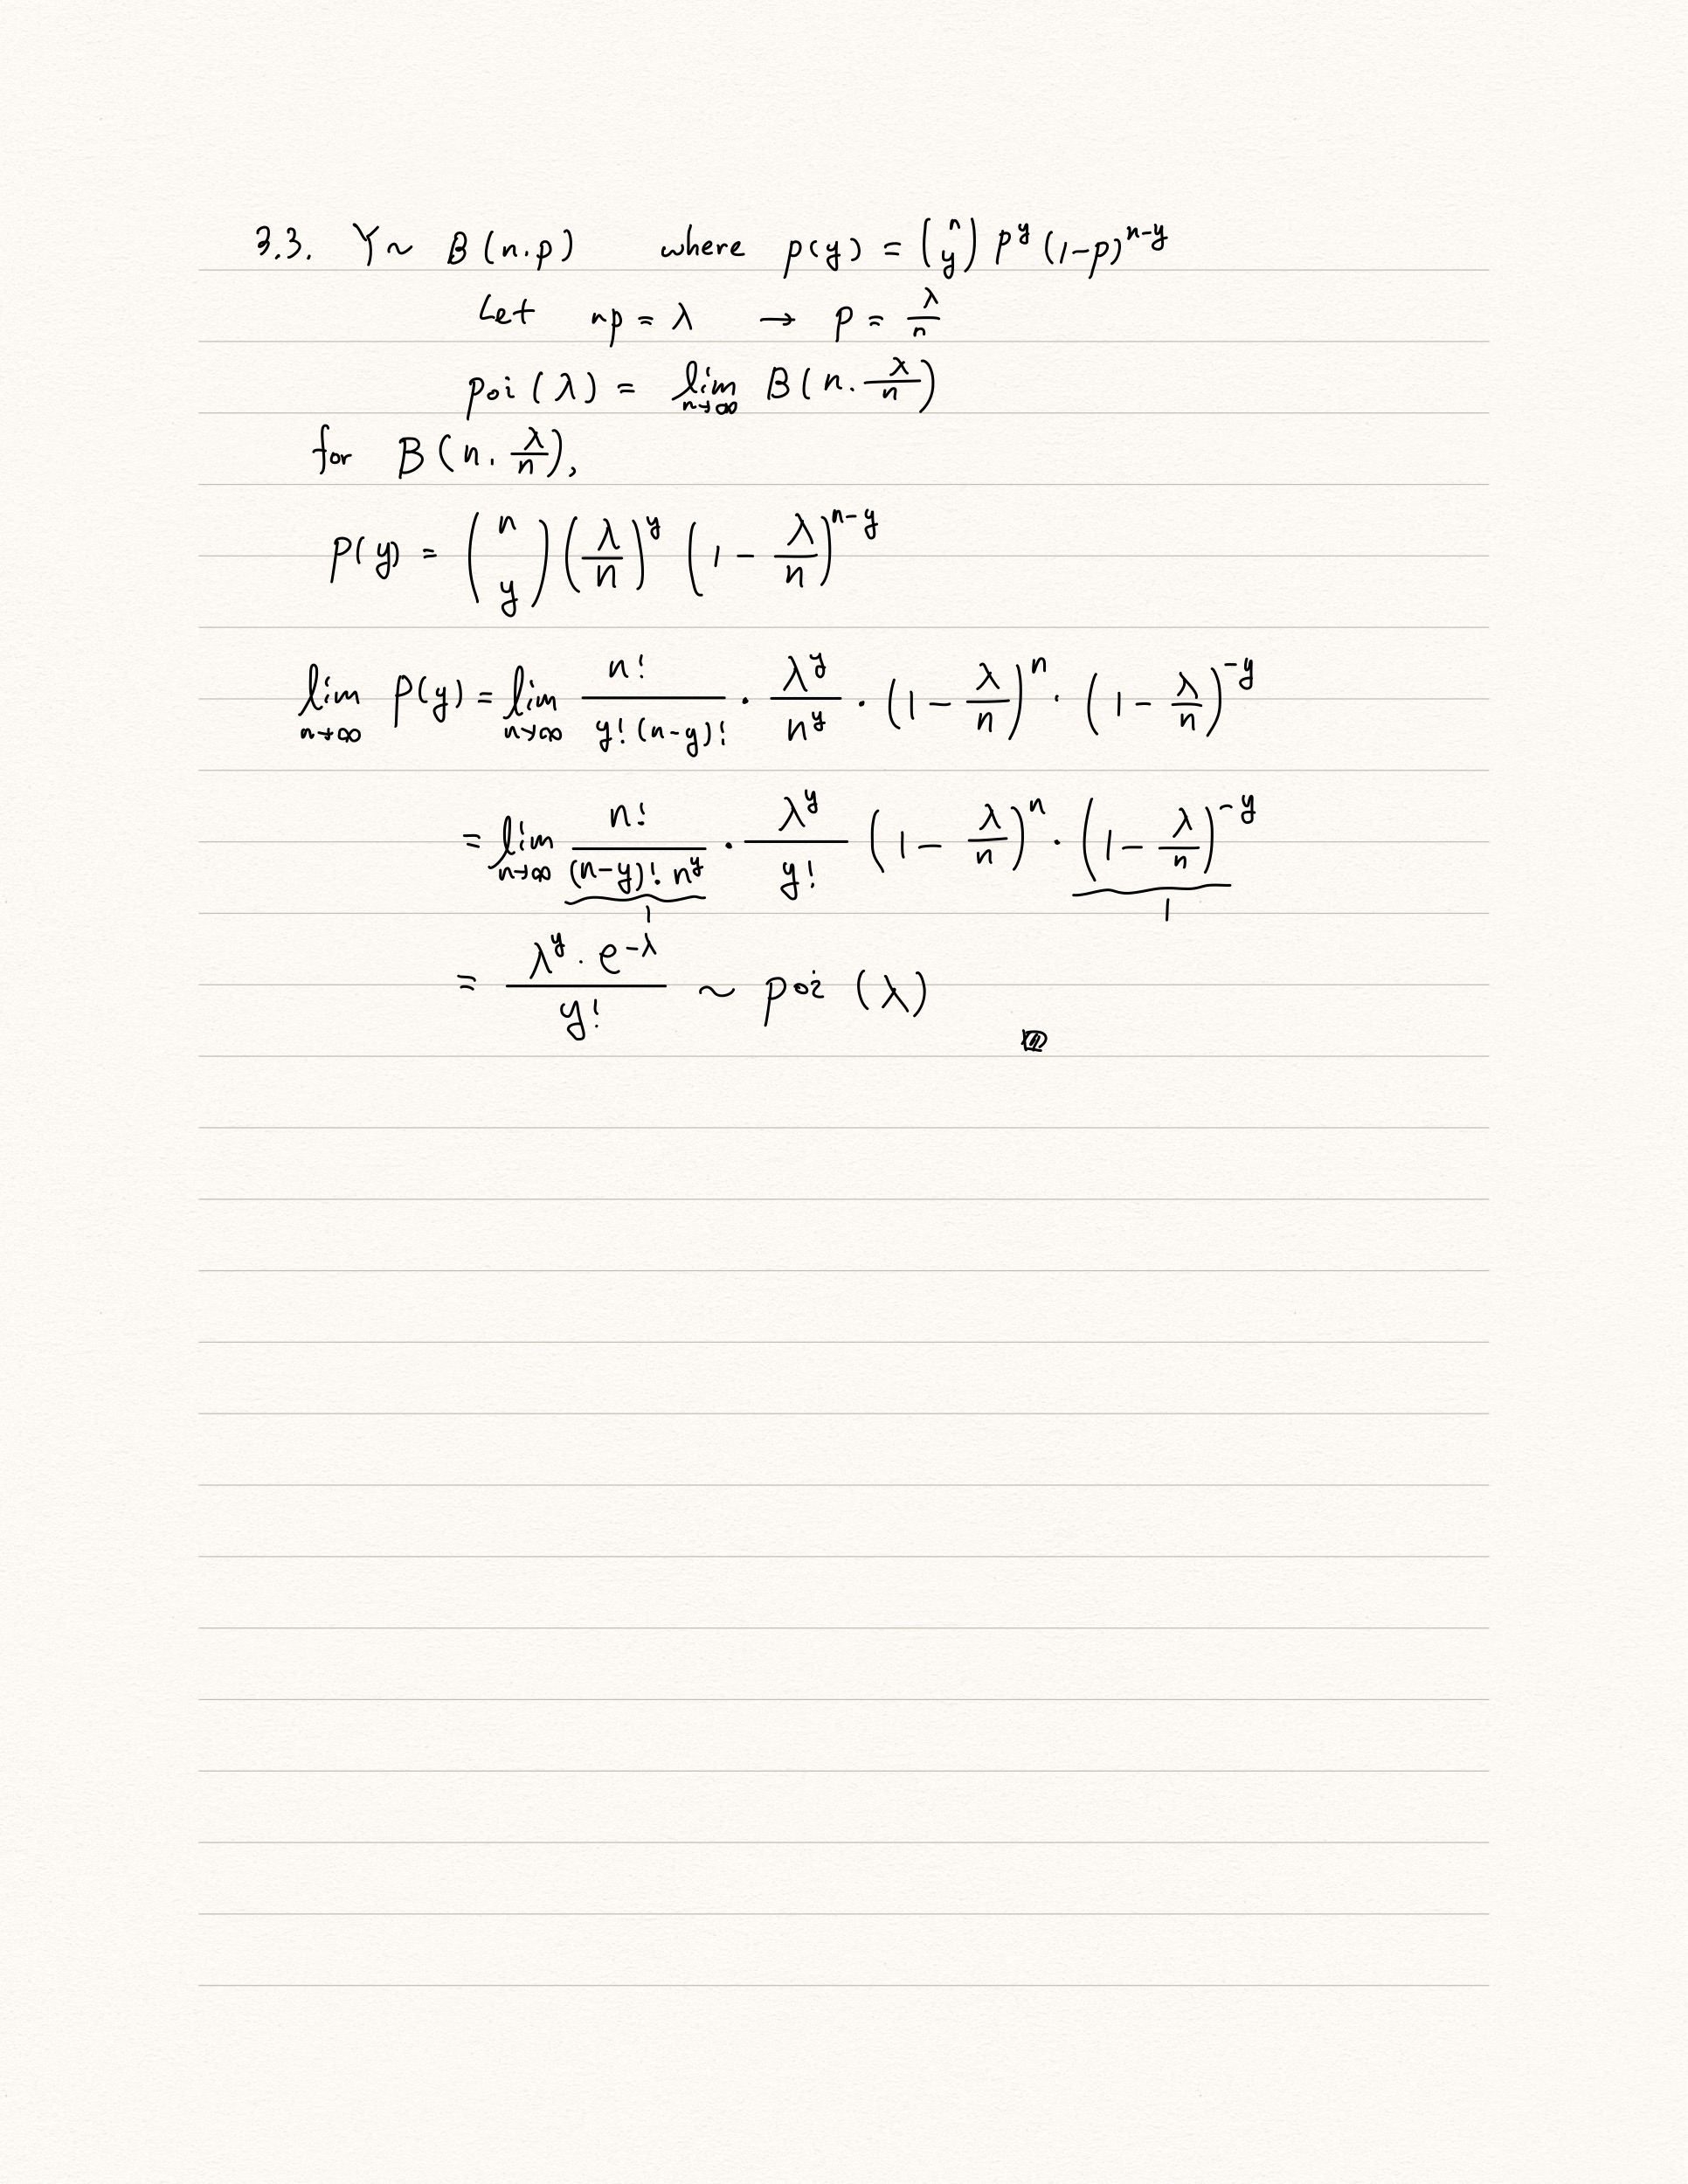 3.3. Y ~ B(n.p) where p(y) = (n y) p^y (1-p)^{n-y}
Let np = λ → p = λ/n
poi(λ) = lim_{n→∞} B(n. λ/n)
for B(n. λ/n),
P(y) = (n y) (λ/n)^y (1 - λ/n)^{n-y}
lim_{n→∞} P(y) = lim_{n→∞} n!/(y!(n-y)!) · λ^y/n^y · (1 - λ/n)^n · (1 - λ/n)^{-y}
= lim_{n→∞} n!/((n-y)! n^y) · λ^y/y! (1 - λ/n)^n · (1 - λ/n)^{-y}
1 1
= λ^y · e^{-λ}/y! ~ poi(λ)